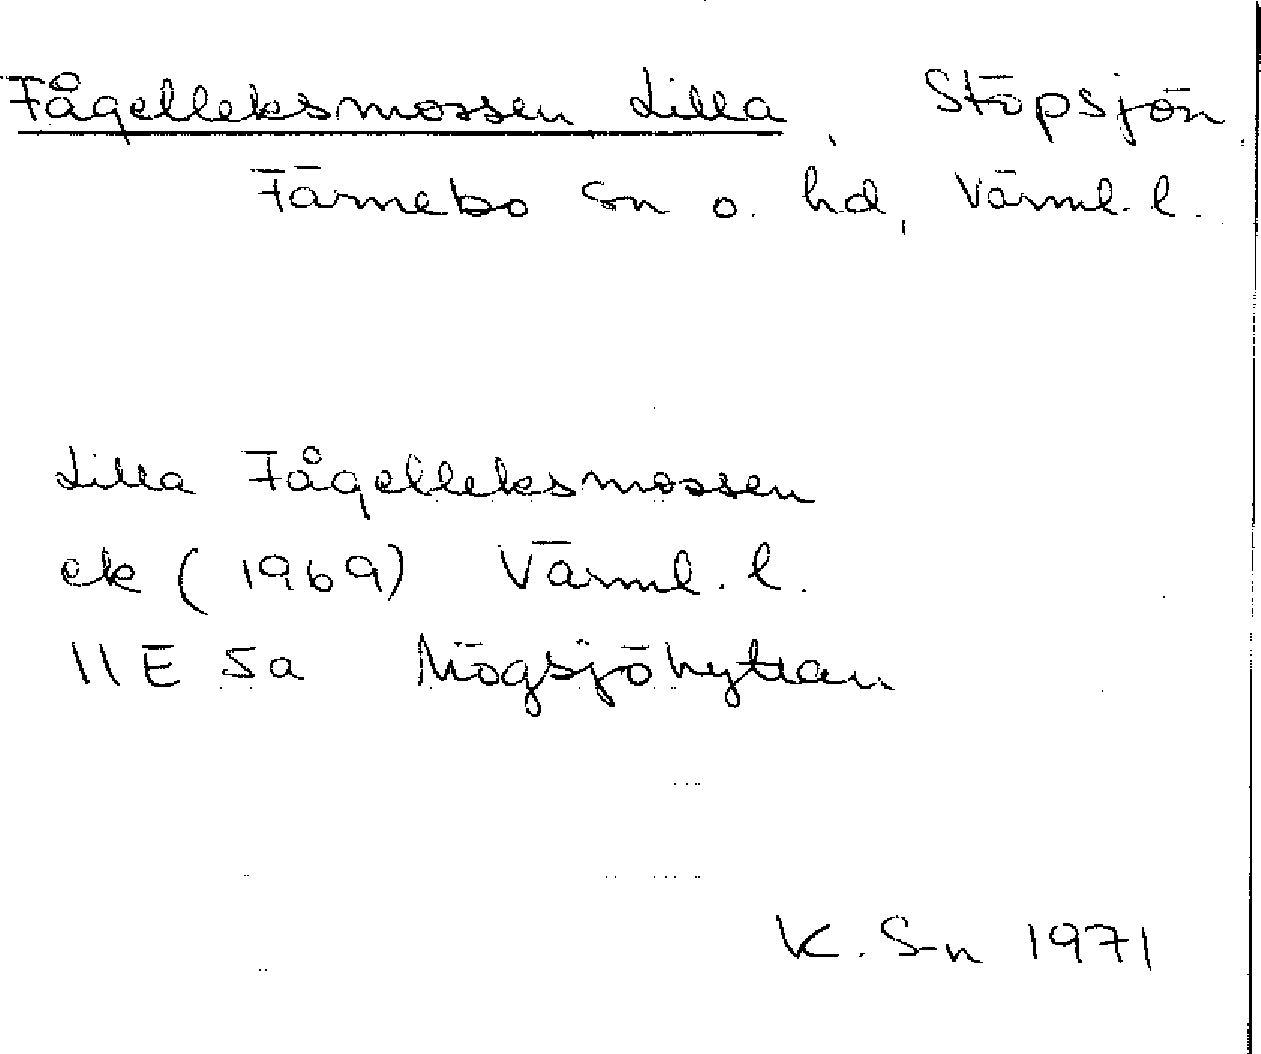 Fågelleksmossen Lilla, Stöpsjön,
Färnebo sn o. hd, Värml. l.
Lilla Fågelleksmossen
ek (1969) Värml. l.
11E 5a Mögsjöhyttan
K. S-n 1971